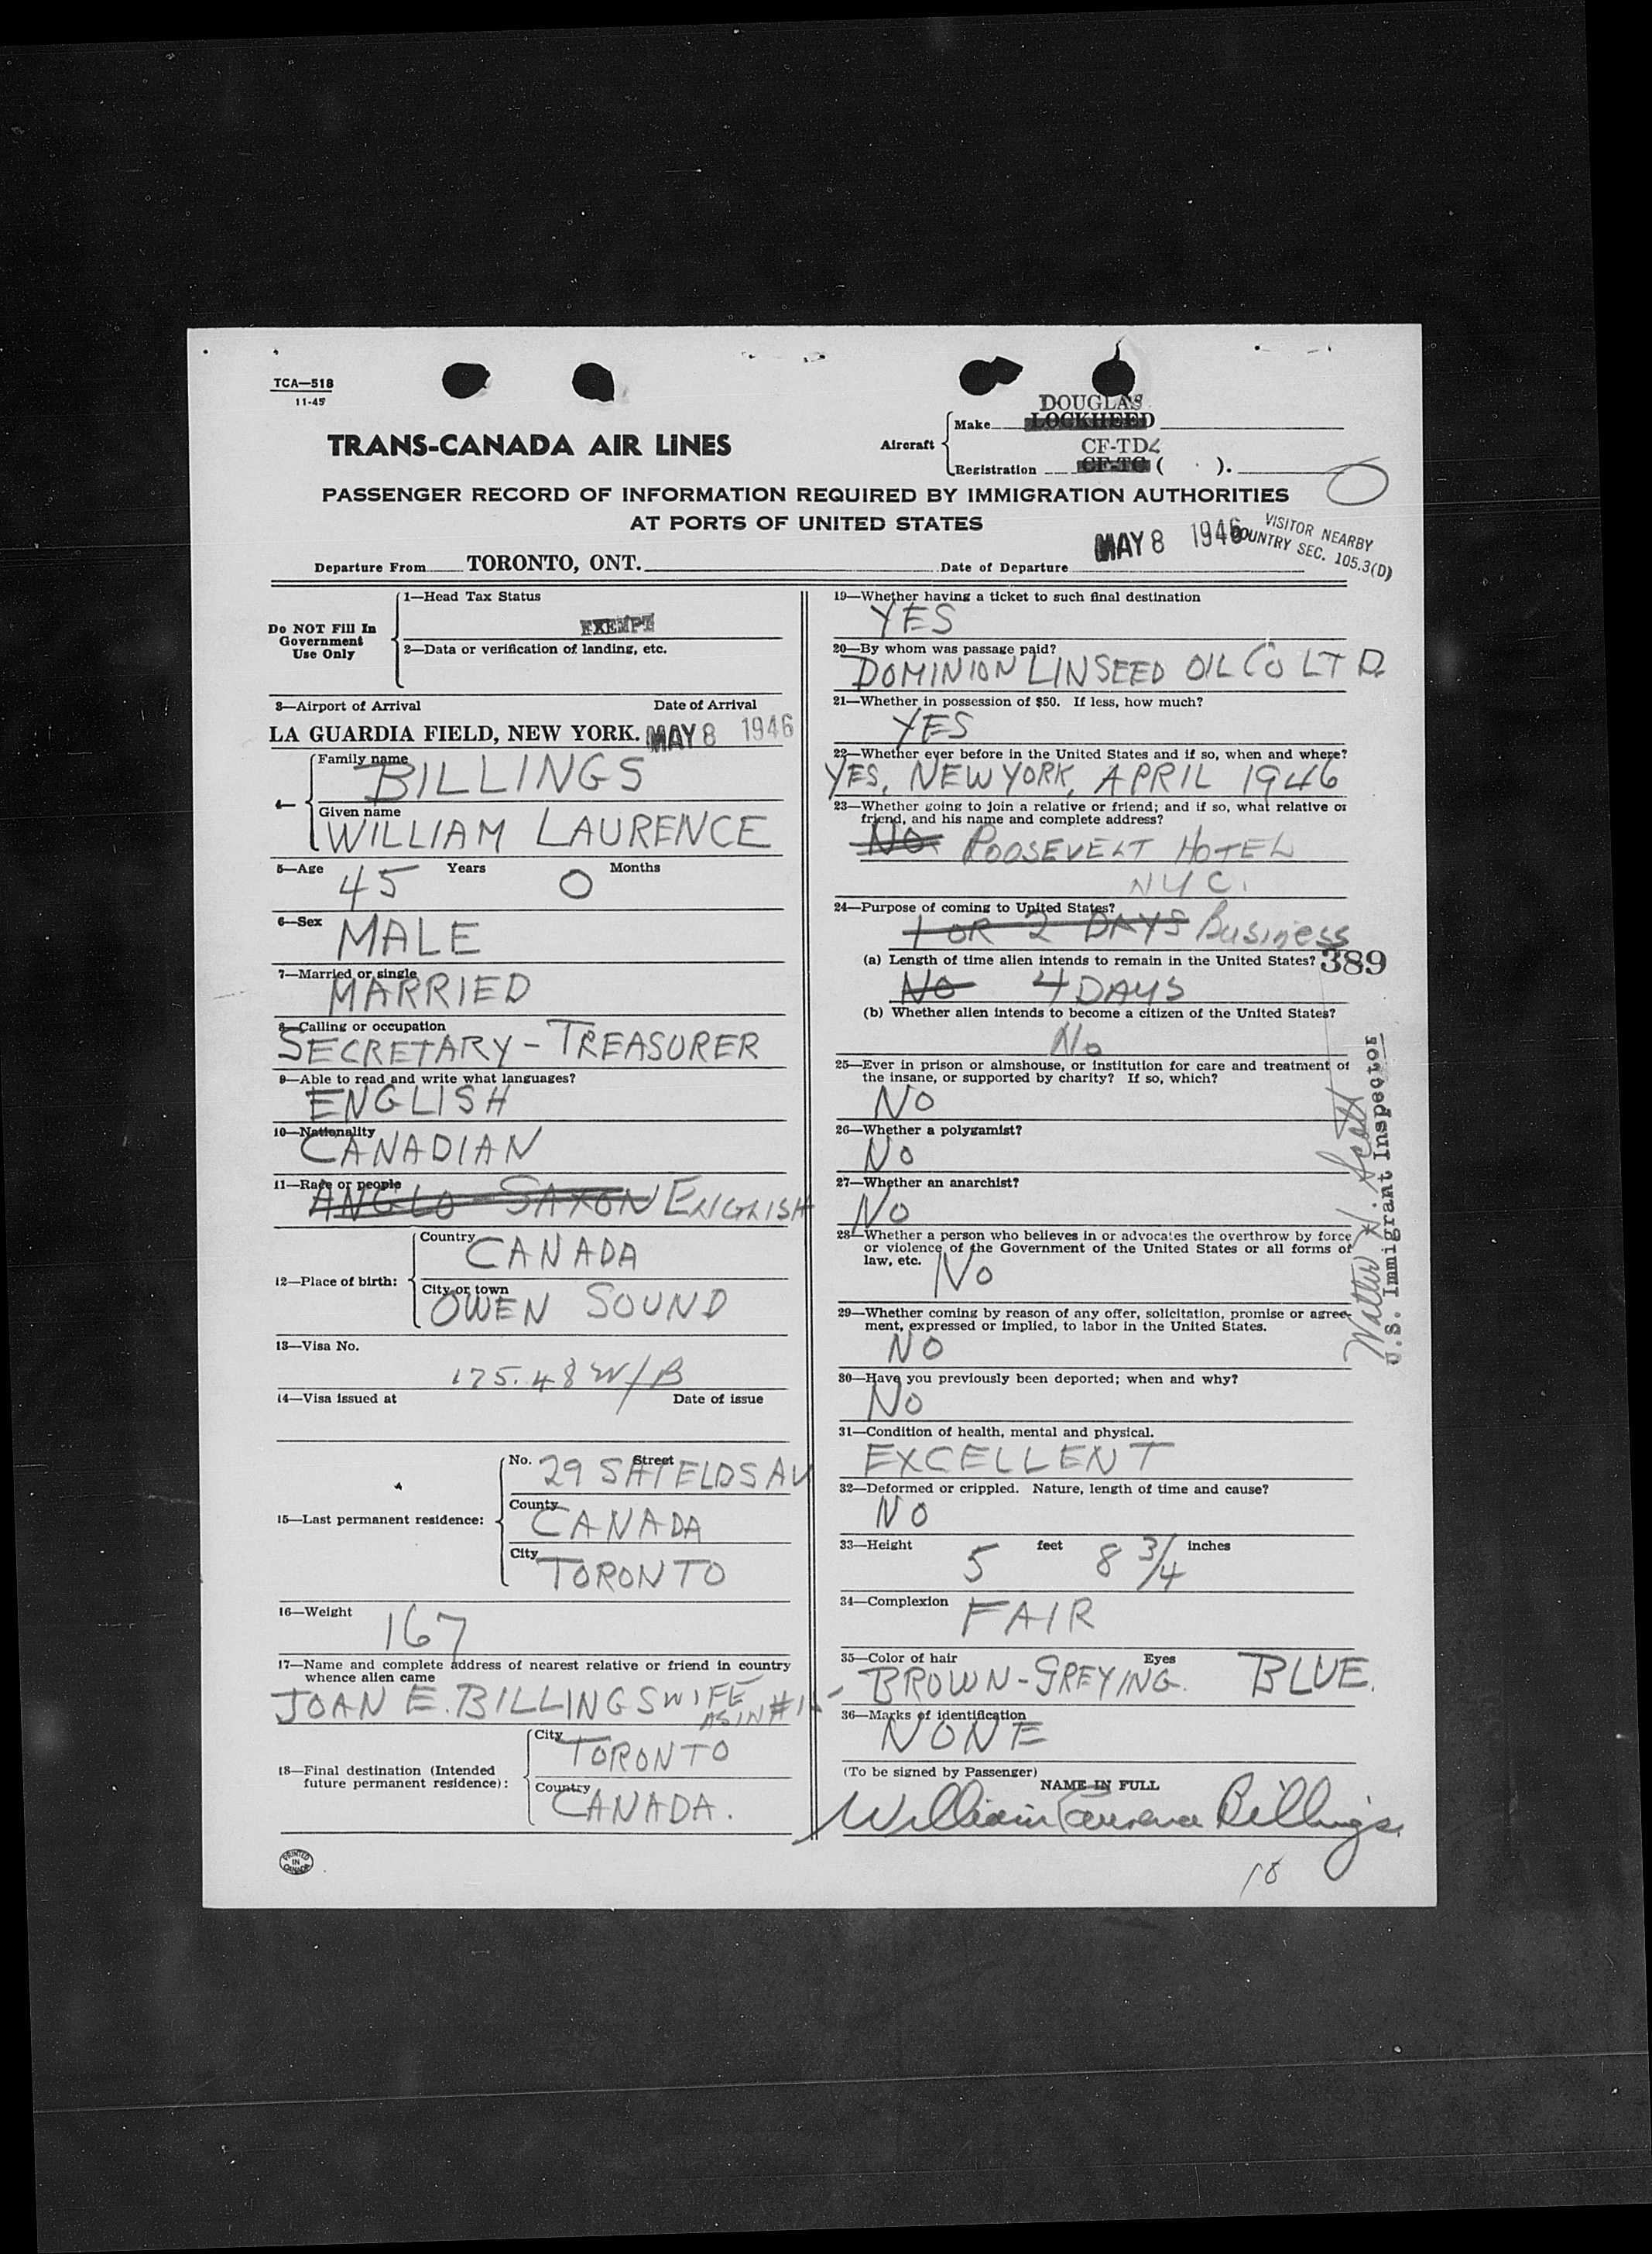 TCA—518
11-45
DOUGLAS
Make LOCKHEED
TRANS-CANADA AIR LINES
Aircraft
CF-TD
Registration CF-TC ( ).
PASSENGER RECORD OF INFORMATION REQUIRED BY IMMIGRATION AUTHORITIES
AT PORTS OF UNITED STATES
VISITOR NEARBY
COUNTRY SEC. 105.3(D)
Departure From TORONTO, ONT. Date of Departure MAY 8 1946
Do NOT Fill In
Government
Use Only
1—Head Tax Status
EXEMPT
2—Data or verification of landing, etc.
3—Airport of Arrival Date of Arrival
LA GUARDIA FIELD, NEW YORK. MAY 8 1946
4—
Family name
BILLINGS
Given name
WILLIAM LAURENCE
5—Age 45 Years 0 Months
6—Sex MALE
7—Married or single
MARRIED
8—Calling or occupation
SECRETARY - TREASURER
9—Able to read and write what languages?
ENGLISH
10—Nationality
CANADIAN
11—Race or people
ANGLO-SAXON ENGLISH
12—Place of birth:
Country
CANADA
City or town
OWEN SOUND
13—Visa No.
175.48 W/B
14—Visa issued at Date of issue
15—Last permanent residence:
No. 29 Street SHIELDS AV
County
CANADA
City
TORONTO
16—Weight 167
17—Name and complete address of nearest relative or friend in country
whence alien came
JOAN E. BILLINGS WIFE
AS IN #15
18—Final destination (Intended
future permanent residence):
City
TORONTO
Country
CANADA.
PRINTED
IN
CANADA
19—Whether having a ticket to such final destination
YES
20—By whom was passage paid?
DOMINION LINSEED OIL CO LTD.
21—Whether in possession of $50. If less, how much?
YES
22—Whether ever before in the United States and if so, when and where?
YES, NEW YORK, APRIL 1946
23—Whether going to join a relative or friend; and if so, what relative or
friend, and his name and complete address?
NO. ROOSEVELT HOTEL
NYC.
24—Purpose of coming to United States?
1 OR 2 DAYS Business
(a) Length of time alien intends to remain in the United States? 389
NO 4 DAYS
(b) Whether alien intends to become a citizen of the United States?
No
25—Ever in prison or almshouse, or institution for care and treatment of
the insane, or supported by charity? If so, which?
NO
26—Whether a polygamist?
NO
27—Whether an anarchist?
NO
28—Whether a person who believes in or advocates the overthrow by force
or violence of the Government of the United States or all forms of
law, etc. NO
29—Whether coming by reason of any offer, solicitation, promise or agree-
ment, expressed or implied, to labor in the United States.
NO
30—Have you previously been deported; when and why?
NO
31—Condition of health, mental and physical.
EXCELLENT
32—Deformed or crippled. Nature, length of time and cause?
NO
33—Height 5 feet 8 3/4 inches
34—Complexion FAIR
35—Color of hair Eyes
BROWN-GREYING. BLUE.
36—Marks of identification
NONE
(To be signed by Passenger)
NAME IN FULL
William Laurence Billings.
18
Walter N. Scott
U.S. Immigrant Inspector